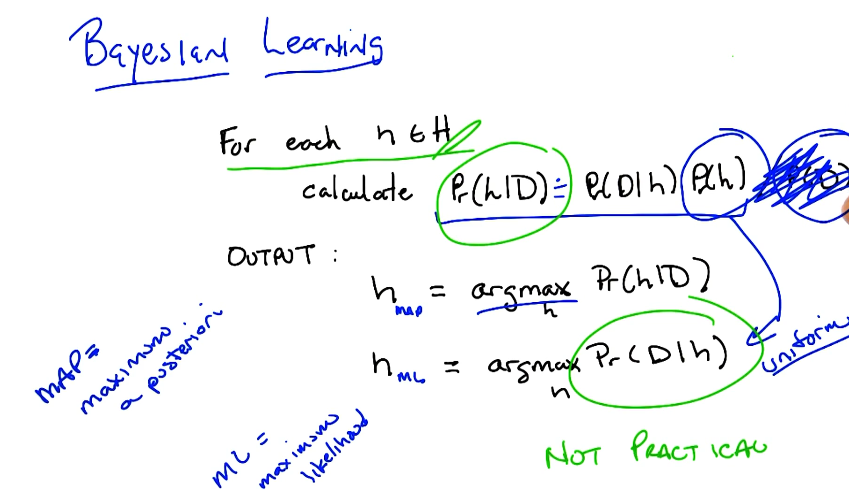 Bayesian Learning
For each h ∈ H
calculate Pr(h|D) ≐ Pr(D|h) Pr(h)
OUTPUT :
h_map = argmax_h Pr(h|D)
h_ML = argmax_h Pr(D|h)
uniform
MAP =
maximum
a posteriori
ML =
maximum
likelihood
NOT PRACTICAL